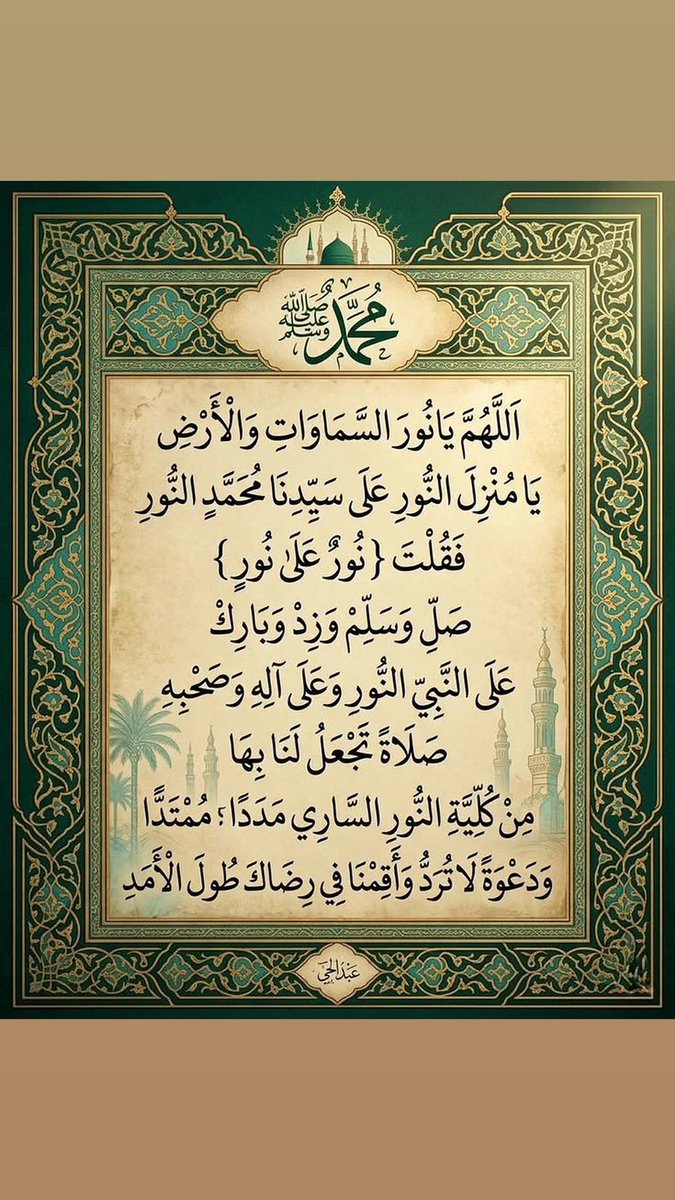 مُحَمَّدٌ
صَلَّى اللّٰهُ عَلَيْهِ وَسَلَّمَ
اَللَّهُمَّ يَانُورَ السَّمَاوَاتِ وَالْأَرْضِ
يَا مُنْزِلَ النُّورِ عَلَى سَيِّدِنَا مُحَمَّدٍ النُّورِ
فَقُلْتَ {نُورٌ عَلَىٰ نُورٍ}
صَلِّ وَسَلِّمْ وَزِدْ وَبَارِكْ
عَلَى النَّبِيِّ النُّورِ وَعَلَى آلِهِ وَصَحْبِهِ
صَلَاةً تَجْعَلُ لَنَا بِهَا
مِنْ كُلِّيَّةِ النُّورِ السَّارِي مَدَدًا؛ مُمْتَدًّا
وَدَعْوَةً لَا تُرَدُّ وَأَقِمْنَا فِي رِضَاكَ طُولَ الْأَمَدِ
عَبْدُ الْحَيِّ